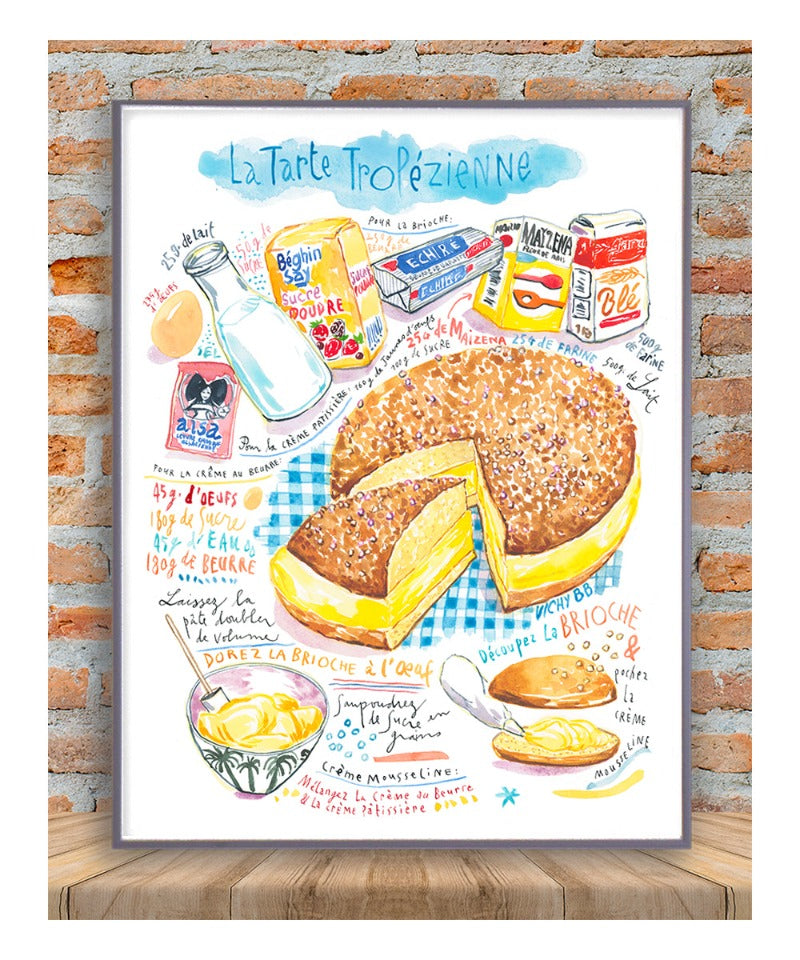 La Tarte Tropézienne
POUR LA BRIOCHE:
25g. de lait
50g. de
Sucre
Béghin
Say
Sucre
POUDRE
ECHIRÉ
ECHIRÉ
MAIZENA
FLEUR DE MAÏS
Blé
1 KG
500g
de FARINE
OEUFS
SEL
alsa
Pour la CRÈME PATISSIÈRE: 160g de Jaunes d'oeufs
100g de SUCRE
25g de MAIZENA
25g de FARINE
500g. de Lait
POUR LA CRÈME AU BEURRE:
45g. d'OEUFS
180g de Sucre
45g d'EAU
180g de BEURRE
Laissez la
pâte doubler
de volume
VICHY BB
DOREZ LA BRIOCHE à l'oeuf
Découpez La BRIOCHE
&
pochez
la
CRÈME
MOUSSELINE
Saupoudrez
de Sucre en
grains
CRÈME MOUSSELINE:
Mélangez La Crème au Beurre
& La crème Pâtissière